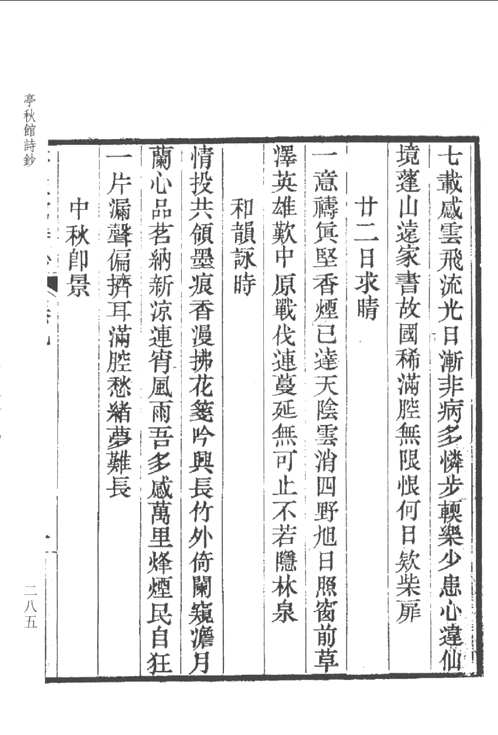 亭秋館詩鈔
七載感雲飛流光日漸非病多憐步輭樂少患心違仙
境蓬山遠家書故國稀滿腔無限恨何日欵柴扉
廿二日求晴
一意禱眞堅香煙已達天陰雲消四野旭日照窗前草
澤英雄歎中原戰伐連蔓延無可止不若隱林泉
和韻詠時
情投共領墨痕香漫拂花箋吟興長竹外倚闌窺澹月
蘭心品茗納新涼連宵風雨吾多感萬里烽煙民自狂
一片漏聲偏擠耳滿腔愁緒夢難長
中秋卽景
二八五